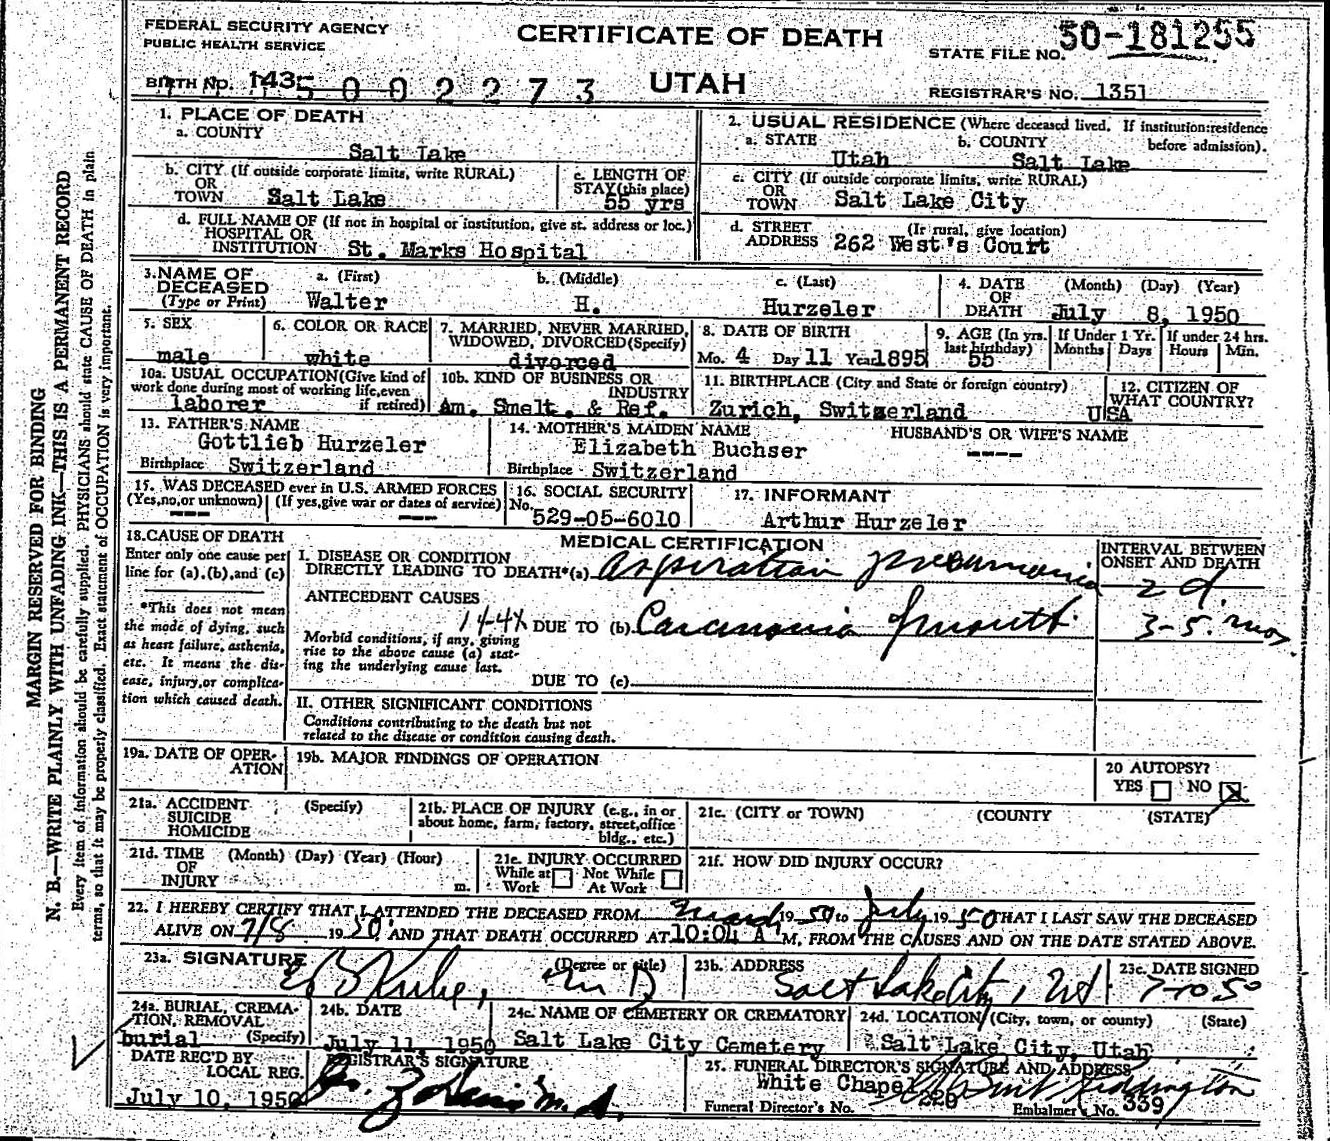 FEDERAL SECURITY AGENCY
PUBLIC HEALTH SERVICE
CERTIFICATE OF DEATH
STATE FILE NO. 50-181255
BIRTH NO. 143 5002273
UTAH
REGISTRAR'S NO. 1351
1. PLACE OF DEATH
a. COUNTY
Salt Lake
2. USUAL RESIDENCE (Where deceased lived. If institution:residence before admission).
a. STATE b. COUNTY
Utah Salt Lake
b. CITY (If outside corporate limits, write RURAL)
OR
TOWN Salt Lake
c. LENGTH OF
STAY (this place)
55 yrs
c. CITY (If outside corporate limits, write RURAL)
OR
TOWN Salt Lake City
d. FULL NAME OF (If not in hospital or institution, give st. address or loc.)
HOSPITAL OR
INSTITUTION St. Marks Hospital
d. STREET (If rural, give location)
ADDRESS 262 West's Court
3. NAME OF DECEASED
(Type or Print)
a. (First) b. (Middle) c. (Last)
Walter H. Hurzeler
4. DATE OF DEATH (Month) (Day) (Year)
July 8, 1950
5. SEX
male
6. COLOR OR RACE
white
7. MARRIED, NEVER MARRIED,
WIDOWED, DIVORCED (Specify)
divorced
8. DATE OF BIRTH
Mo. 4 Day 11 Year 1895
9. AGE (In yrs. last birthday)
55
If Under 1 Yr.
Months Days
If under 24 hrs.
Hours Min.
10a. USUAL OCCUPATION (Give kind of
work done during most of working life, even
if retired)
laborer
10b. KIND OF BUSINESS OR
INDUSTRY
Am. Smelt. & Ref.
11. BIRTHPLACE (City and State or foreign country)
Zurich, Switzerland
12. CITIZEN OF
WHAT COUNTRY?
USA
13. FATHER'S NAME
Gottlieb Hurzeler
Birthplace Switzerland
14. MOTHER'S MAIDEN NAME
Elizabeth Buchser
Birthplace Switzerland
HUSBAND'S OR WIFE'S NAME
----
15. WAS DECEASED ever in U.S. ARMED FORCES
(Yes, no, or unknown) (If yes, give war or dates of service)
--- ---
16. SOCIAL SECURITY
No.
529-05-6010
17. INFORMANT
Arthur Hurzeler
18. CAUSE OF DEATH
Enter only one cause per
line for (a), (b), and (c)
*This does not mean
the mode of dying, such
as heart failure, asthenia,
etc. It means the dis-
ease, injury, or complica-
tion which caused death.
MEDICAL CERTIFICATION
I. DISEASE OR CONDITION
DIRECTLY LEADING TO DEATH*(a) Aspiration pneumonia
ANTECEDENT CAUSES
144X DUE TO (b) Carcinoma of mouth
Morbid conditions, if any, giving
rise to the above cause (a) stat-
ing the underlying cause last.
DUE TO (c)
INTERVAL BETWEEN
ONSET AND DEATH
2 d.
3-5 mos.
II. OTHER SIGNIFICANT CONDITIONS
Conditions contributing to the death but not
related to the disease or condition causing death.
19a. DATE OF OPER-
ATION
19b. MAJOR FINDINGS OF OPERATION
20 AUTOPSY?
YES NO X
21a. ACCIDENT (Specify)
SUICIDE
HOMICIDE
21b. PLACE OF INJURY (e.g., in or
about home, farm, factory, street, office
bldg., etc.)
21c. (CITY or TOWN) (COUNTY) (STATE)
21d. TIME (Month) (Day) (Year) (Hour)
OF
INJURY m.
21e. INJURY OCCURRED
While at Not While
Work At Work
21f. HOW DID INJURY OCCUR?
22. I HEREBY CERTIFY THAT I ATTENDED THE DECEASED FROM March 1950 to July 1950 THAT I LAST SAW THE DECEASED
ALIVE ON 7/8 1950, AND THAT DEATH OCCURRED AT 10:04 A M, FROM THE CAUSES AND ON THE DATE STATED ABOVE.
23a. SIGNATURE (Degree or title)
M D
23b. ADDRESS
Salt Lake City, Ut
23c. DATE SIGNED
7-10 50
24a. BURIAL, CREMA-
TION, REMOVAL
(Specify)
burial
24b. DATE
July 11, 1950
24c. NAME OF CEMETERY OR CREMATORY
Salt Lake City Cemetery
24d. LOCATION (City, town, or county) (State)
Salt Lake City, Utah
DATE REC'D BY
LOCAL REG.
July 10, 1950
REGISTRAR'S SIGNATURE
M. D.
25. FUNERAL DIRECTOR'S SIGNATURE AND ADDRESS
White Chapel
Funeral Director's No. 220 Embalmer's No. 339
MARGIN RESERVED FOR BINDING
N. B.—WRITE PLAINLY WITH UNFADING INK—THIS IS A PERMANENT RECORD
Every item of information should be carefully supplied. PHYSICIANS should state CAUSE OF DEATH in plain
terms, so that it may be properly classified. Exact statement of OCCUPATION is very important.